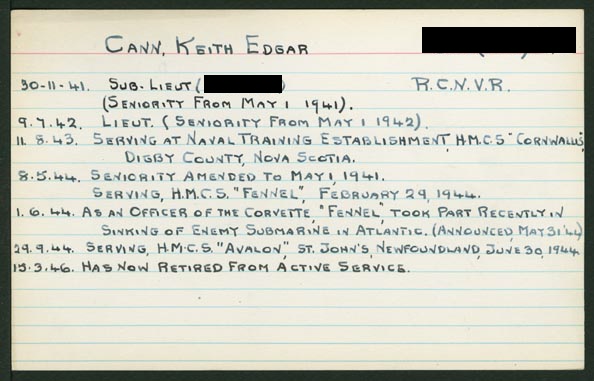 CANN, KEITH EDGAR
30-11-41. SUB. LIEUT ( ) R.C.N.V.R.
(SENIORITY FROM MAY 1 1941).
9.7.42. LIEUT. (SENIORITY FROM MAY 1 1942).
11.8.43. SERVING AT NAVAL TRAINING ESTABLISHMENT, H.M.C.S "CORNWALLIS",
DIGBY COUNTY, NOVA SCOTIA.
8.5.44. SENIORITY AMENDED TO MAY 1, 1941.
SERVING, H.M.C.S. "FENNEL", FEBRUARY 29, 1944.
1.6.44. AS AN OFFICER OF THE CORVETTE, "FENNEL", TOOK PART RECENTLY IN
SINKING OF ENEMY SUBMARINE IN ATLANTIC. (ANNOUNCED, MAY 31 '44)
29.9.44. SERVING, H.M.C.S. "AVALON", ST. JOHN'S, NEWFOUNDLAND, JUNE 30, 1944.
15.3.46. HAS NOW RETIRED FROM ACTIVE SERVICE.